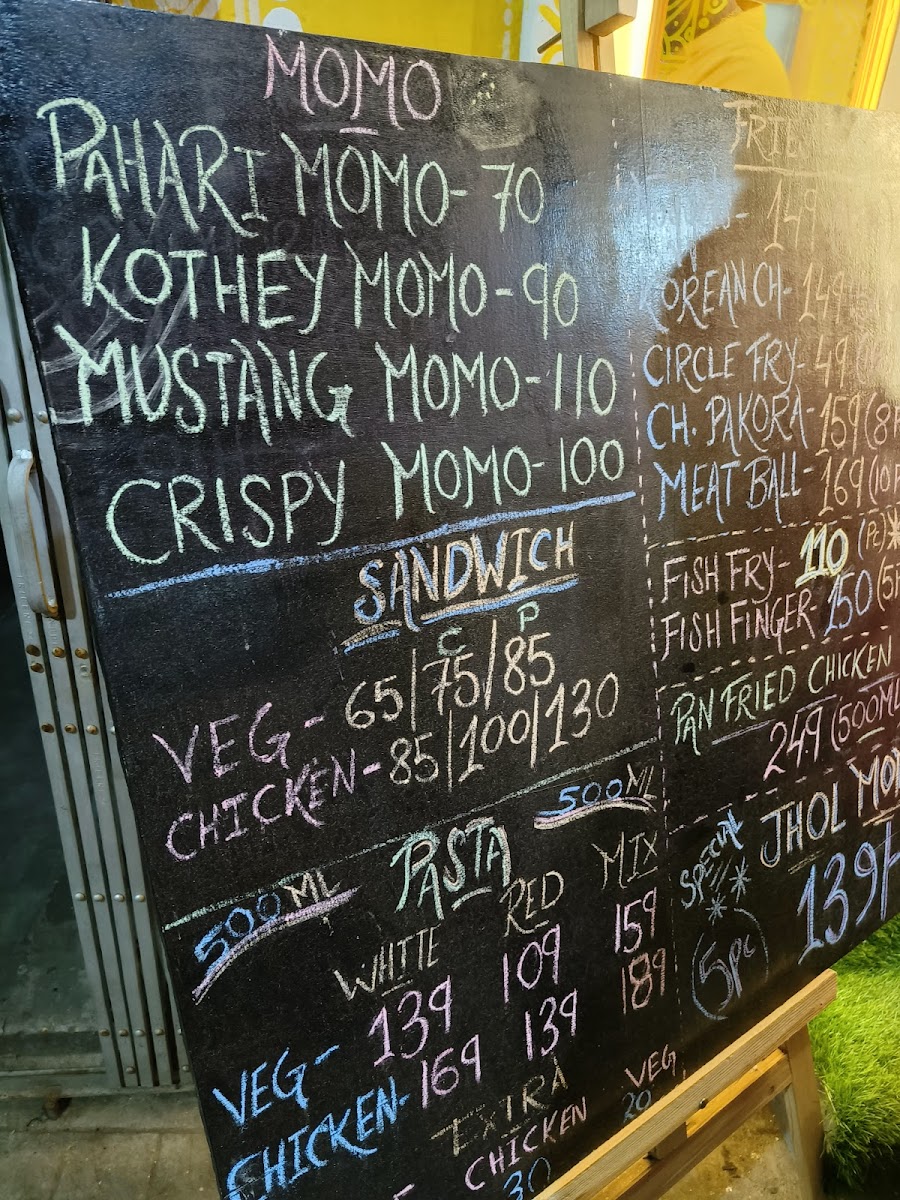 MOMO
PAHARI MOMO- 70
KOTHEY MOMO- 90
MUSTANG MOMO- 110
CRISPY MOMO- 100
SANDWICH
C P
VEG- 65/75/85
CHICKEN- 85/100/130
500ML PASTA 500ML
WHITE RED MIX
VEG- 139 109 159
CHICKEN- 169 139 189
EXTRA
CHICKEN VEG
30 20
149
KOREAN CH- 149
CIRCLE FRY- 49
CH. PAKORA- 159 (8
MEAT BALL- 169 (10
FISH FRY- 110 (Pc)*
FISH FINGER- 150 (5
PAN FRIED CHICKEN
249 (500ML
SPECIAL JHOL
5pc 139/-